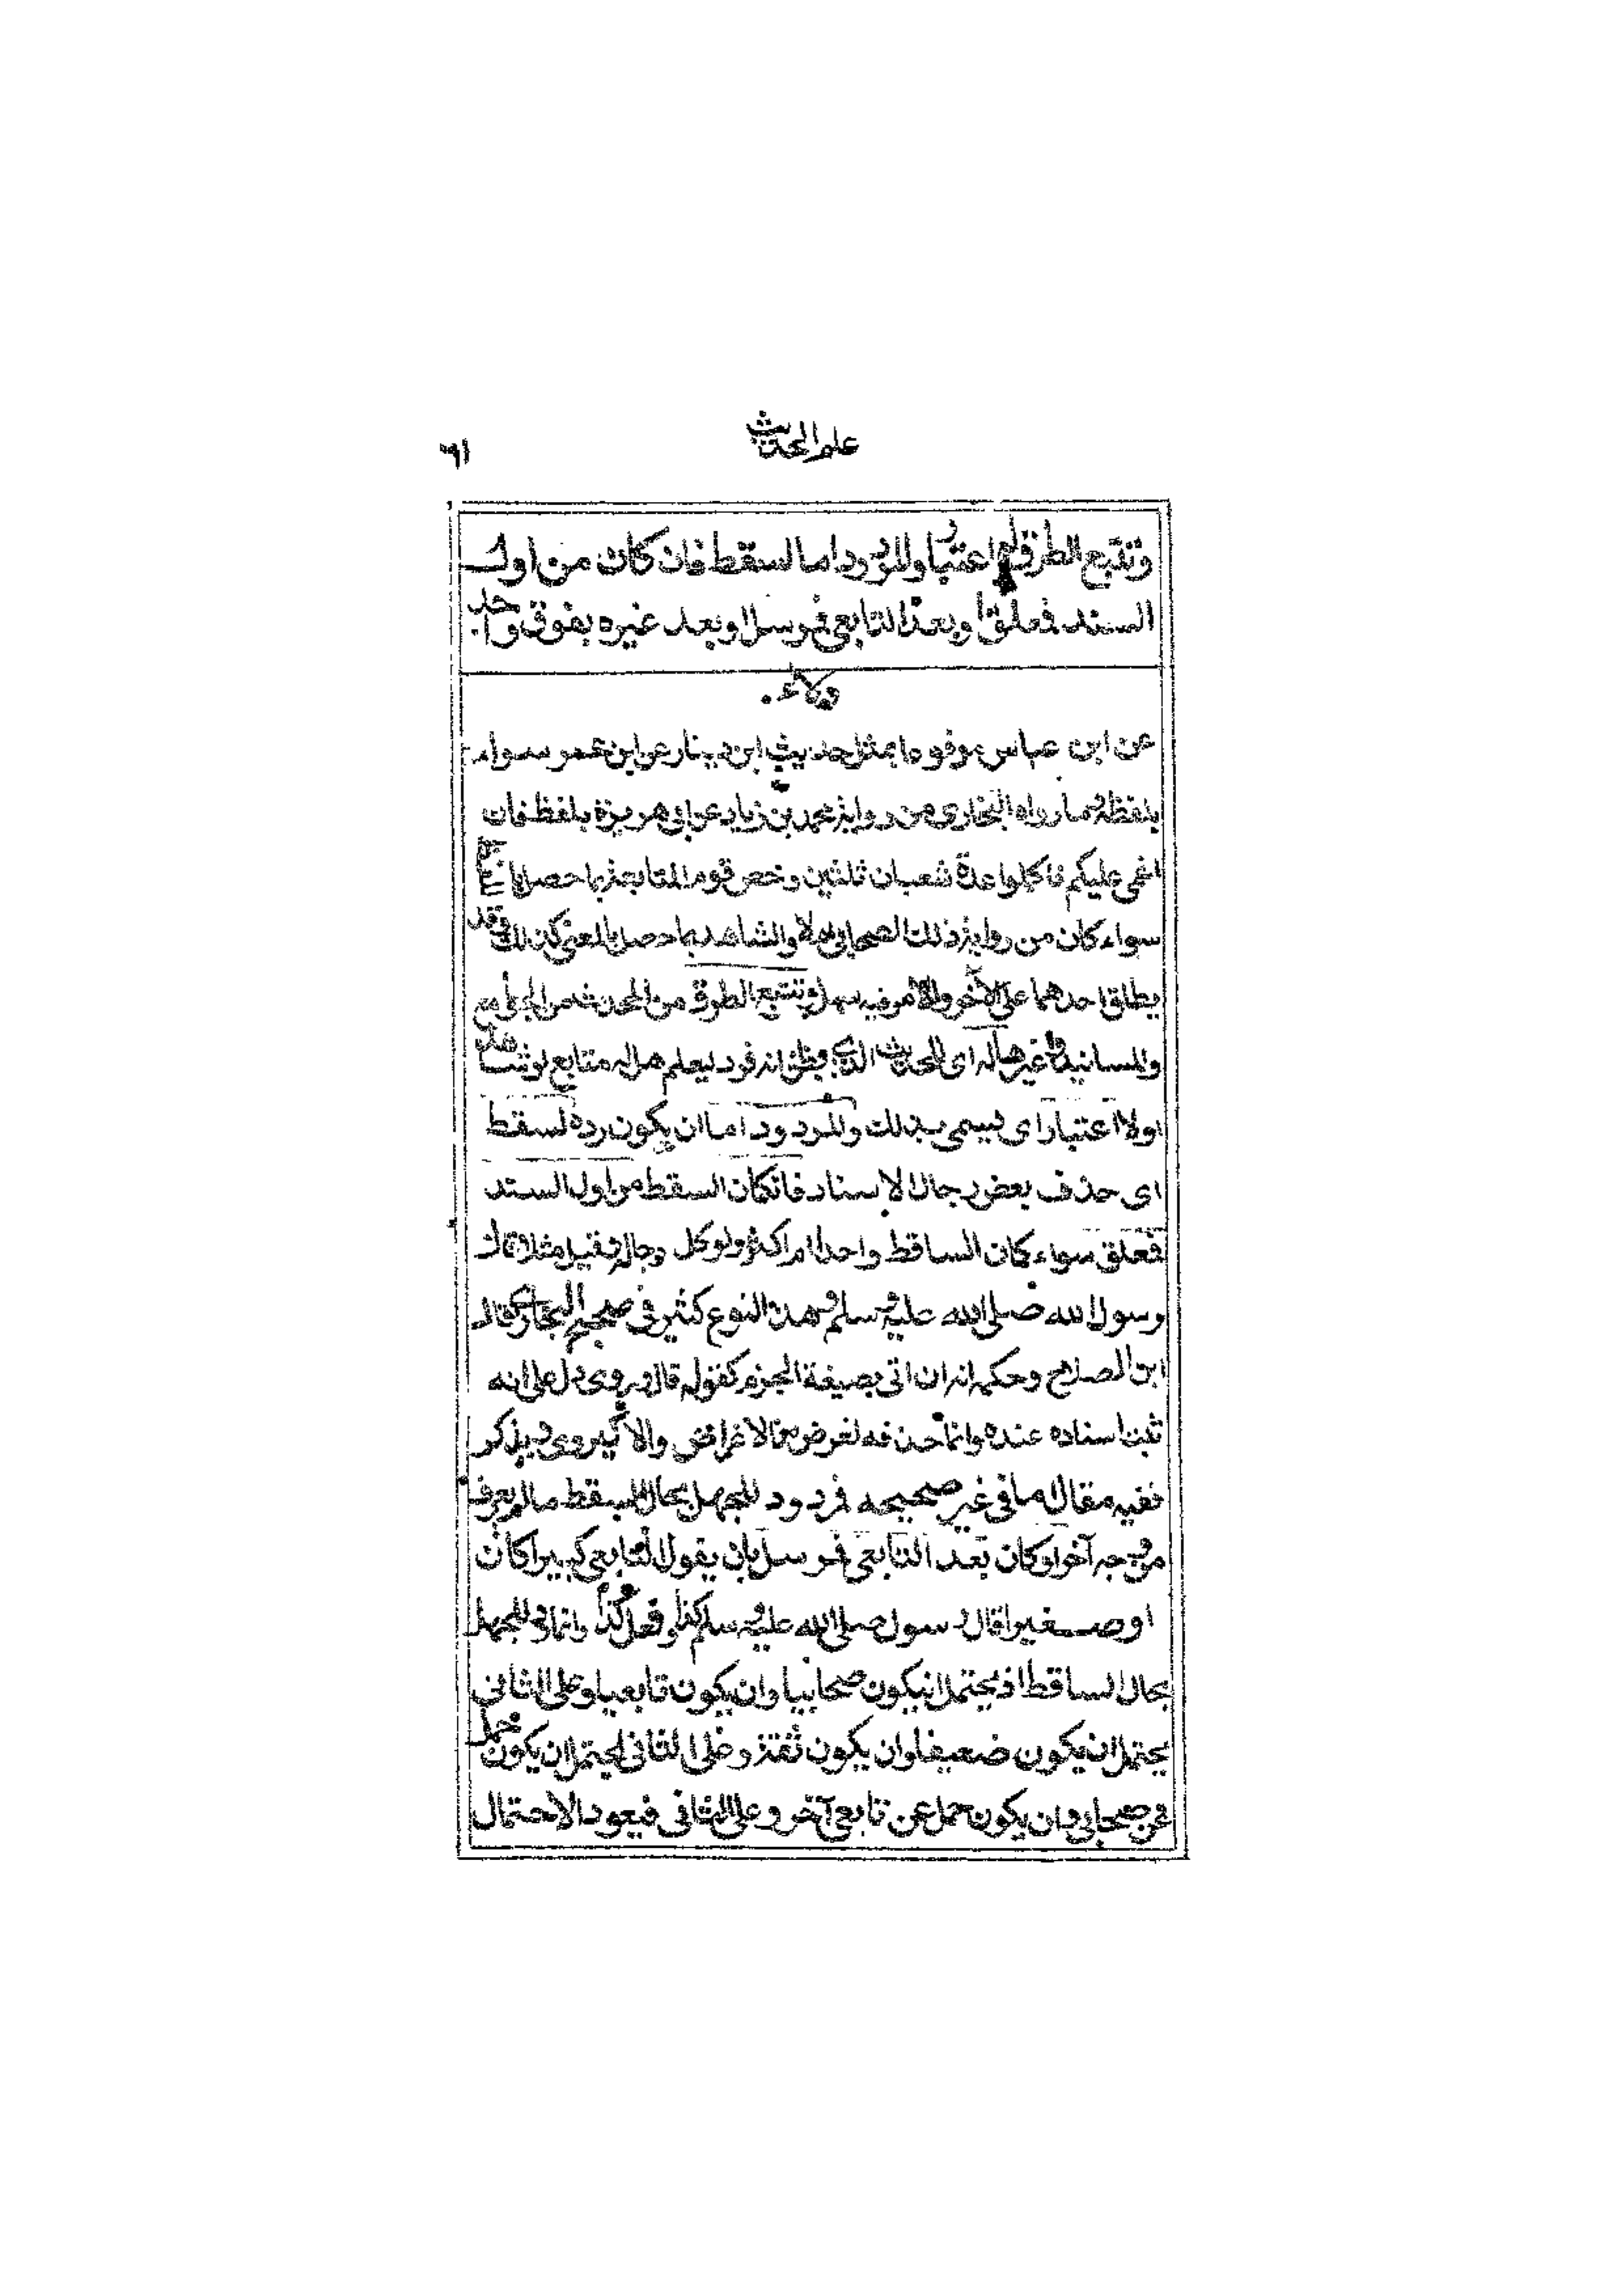 علم الحديث
٦١
وتتبع الطرق له اعتبار والمردود اما السقط فان كان من اول
السند فمعلق او بعد التابعي فمرسل او بعد غيره بفوق واحد
ولاء.
عن ابن عباس مرفوعا بمثل حديث ابن دينار عن ابن عمر سواء
بلفظه وما رواه البخاري من رواية محمد بن زياد عن ابي هريرة بلفظ فان
اغمى عليكم فاكملوا عدة شعبان ثلثين وخص قوم المتابعة بما حصل
سواء كان من رواية ذلك الصحابي ام لا والشاهد بما حصل بالمعنى كذلك وقد
يطلق احدهما على الآخر والامر فيه سهل وتتبع الطرق من المحدث من الجوامع
والمسانيد وغيرها له اى للحديث الذي يظن انه فرد ليعلم هل له متابع او شاهد
اولا اعتبار اى يسمى بذلك والمردود اما ان يكون رده لسقط
اى حذف بعض رجال الاسناد فان كان السقط من اول السند
فمعلق سواء كان الساقط واحدا ام اكثر ولو كل رجاله فقيل مثلا قال
رسول الله صلى الله عليه وسلم وهذا النوع كثير في صحيح البخاري قال
ابن الصلاح وحكمه انه ان اتى بصيغة الجزم كقوله قال وروى دل على انه
ثبت اسناده عنده وانما حذفه لغرض من الاغراض والا كيروى ويذكر
ففيه مقال اما في غير صحيحه فمردود للجهل بحال السقط ما لم يعرف
من وجه آخر او كان بعد التابعي فمرسل بان يقول التابعي كبيرا كان
او صغيرا قال رسول صلى الله عليه وسلم كذا وفعل كذا وانما رد للجهل
بحال الساقط اذ يحتمل ان يكون صحابيا وان يكون تابعيا وعلى الثاني
يحتمل ان يكون ضعيفا وان يكون ثقة وعلى الثاني يحتمل ان يكون حمل
عن صحابي وان يكون حمل عن تابعي آخر وعلى الثاني فيعود الاحتمال